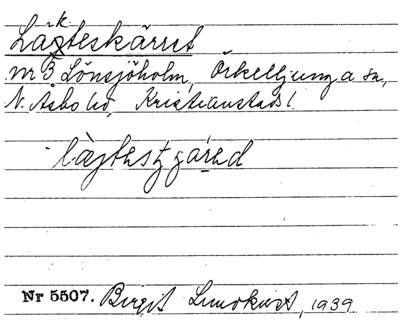 k
Lägteskärret
nr 3 Lönsjöholm, Örkelljunga sn,
N. Åsbo hd, Kristianstads l.
Nr 5507. Birgit Lundkvist, 1939